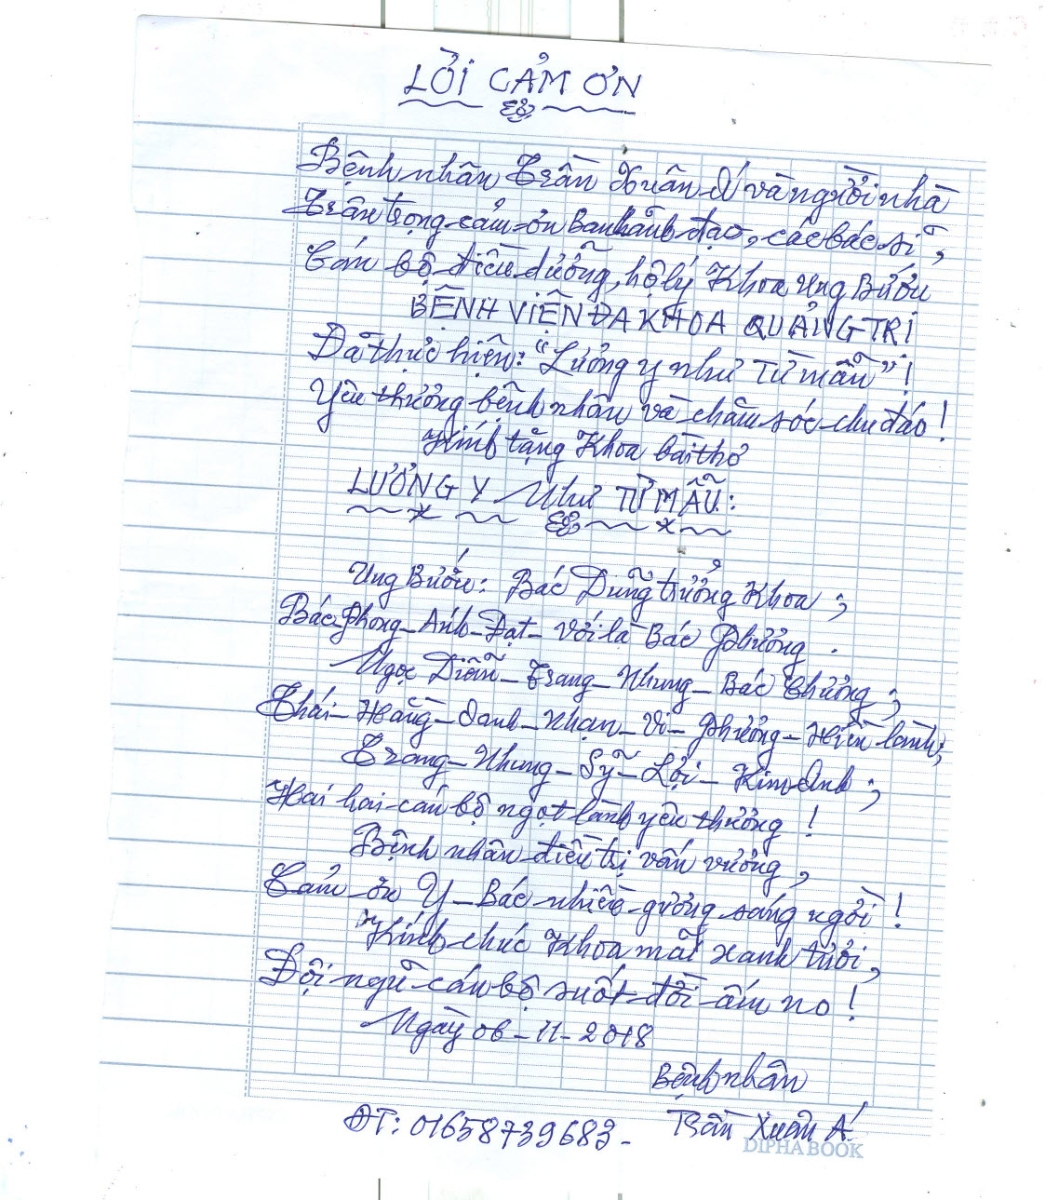 LỜI CẢM ƠN
Bệnh nhân Trần Xuân Á và người nhà
Trân trọng cảm ơn Ban lãnh đạo, các bác sĩ,
Cán bộ điều dưỡng, hộ lý Khoa Ung Bướu
BỆNH VIỆN ĐA KHOA QUẢNG TRỊ
Đã thực hiện: "Lương y như Từ mẫu"!
Yêu thương bệnh nhân và chăm sóc chu đáo!
Kính tặng Khoa bài thơ
LƯƠNG Y Như TỪ MẪU:
Ung Bướu: Bác Dũng trưởng Khoa;
Bác Phong - Ánh - Đạt - Với là Bác Phương.
Ngọc Diễn - Trang - Nhung - Bác Thương;
Thái - Hằng - Oanh - Nhạn - Vi - Phương - Hiền lành;
Trang - Nhung - Sỹ - Lợi - Kim Anh;
Hai hai cán bộ ngọt lành yêu thương!
Bệnh nhân điều trị vấn vương,
Cảm ơn Y - Bác nhiều gương sáng ngời!
Kính chúc Khoa mãi xanh tươi,
Đội ngũ cán bộ suốt đời ấm no!
Ngày 06-11-2018
Bệnh nhân
Trần Xuân Á
ĐT: 01658739683-
DIPHABOOK